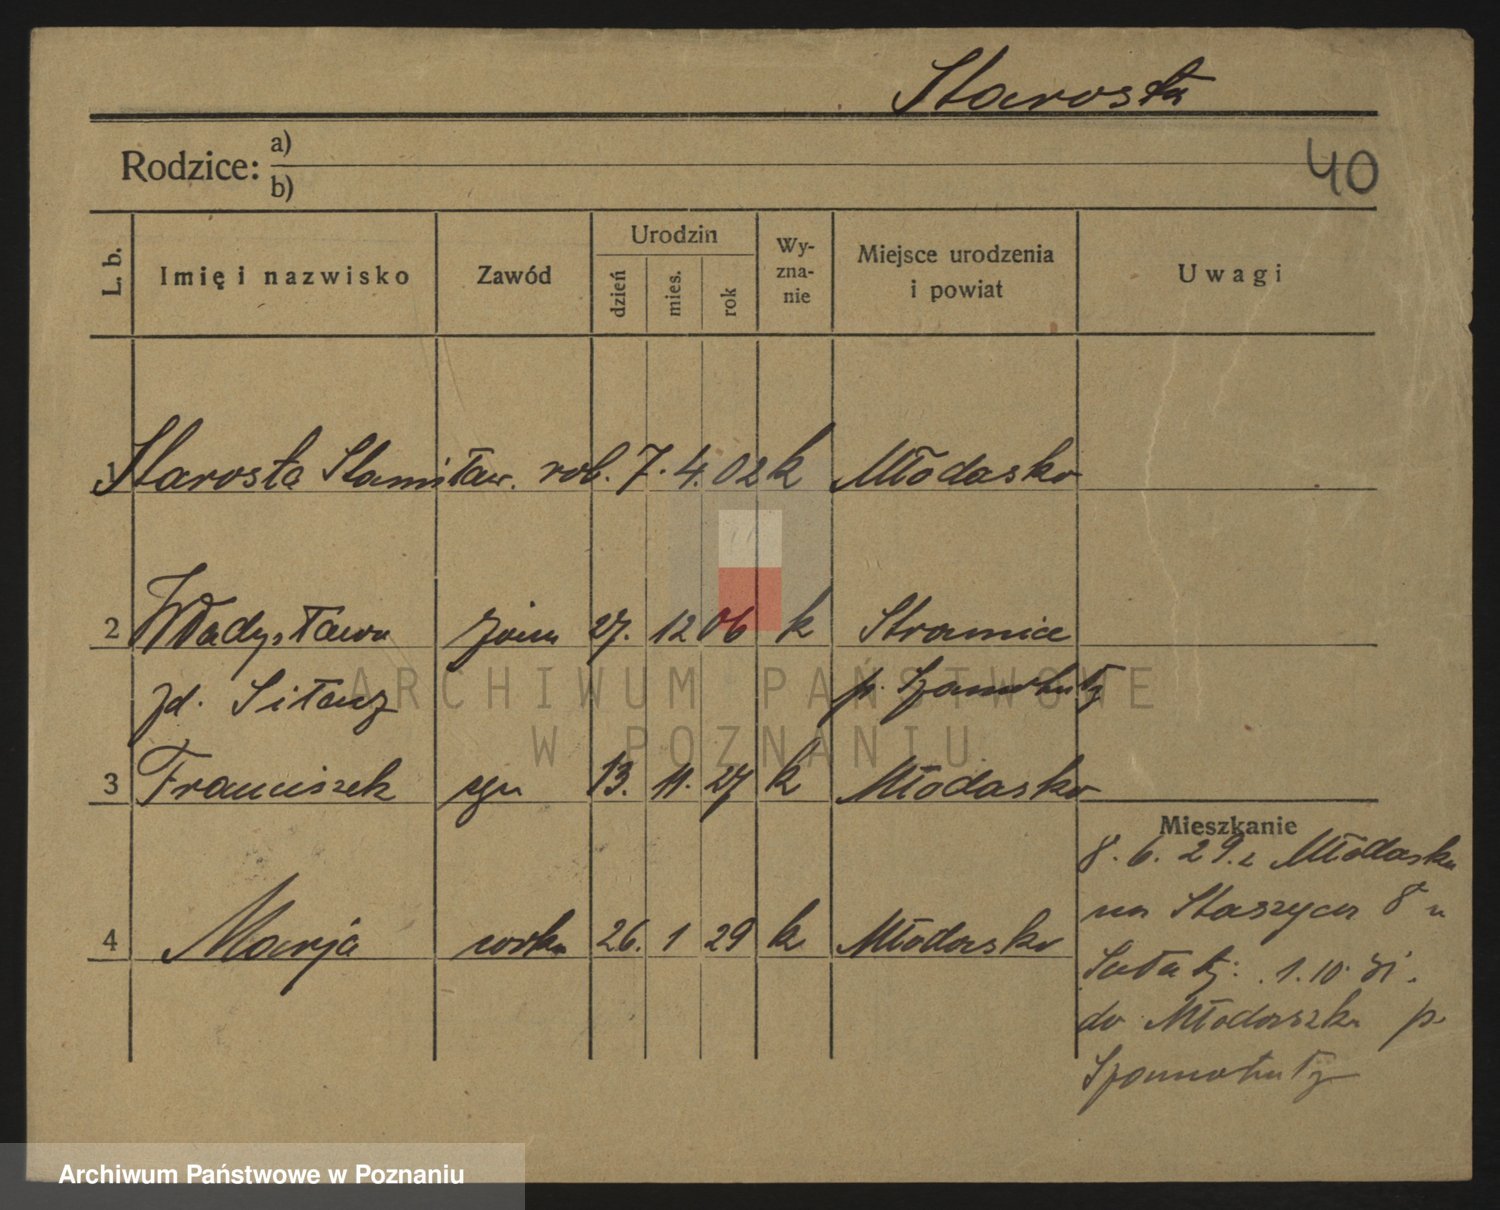 Starosta
Rodzice: a)
b)
40
L. b. Imię i nazwisko Zawód Urodzin dzień mies. rok Wy-zna-nie Miejsce urodzenia i powiat Uwagi
1 Starosta Stanisław. rob. 7. 4. 02 k Młodasko
2 Władysława żona 27. 12 06 k
zd. p. Szamotuły
3 Franciszek syn 13. 11. 27 k Młodasko
Mieszkanie
8. 6. 29. z Młodaska
4 Marja córka 26. 1 29 k Młodasko
na Staszyca 8 u
1. 10. 31.
do Młodaszka p.
Szamotuły
ARCHIWUM PAŃSTWOWE
W POZNANIU
Archiwum Państwowe w Poznaniu